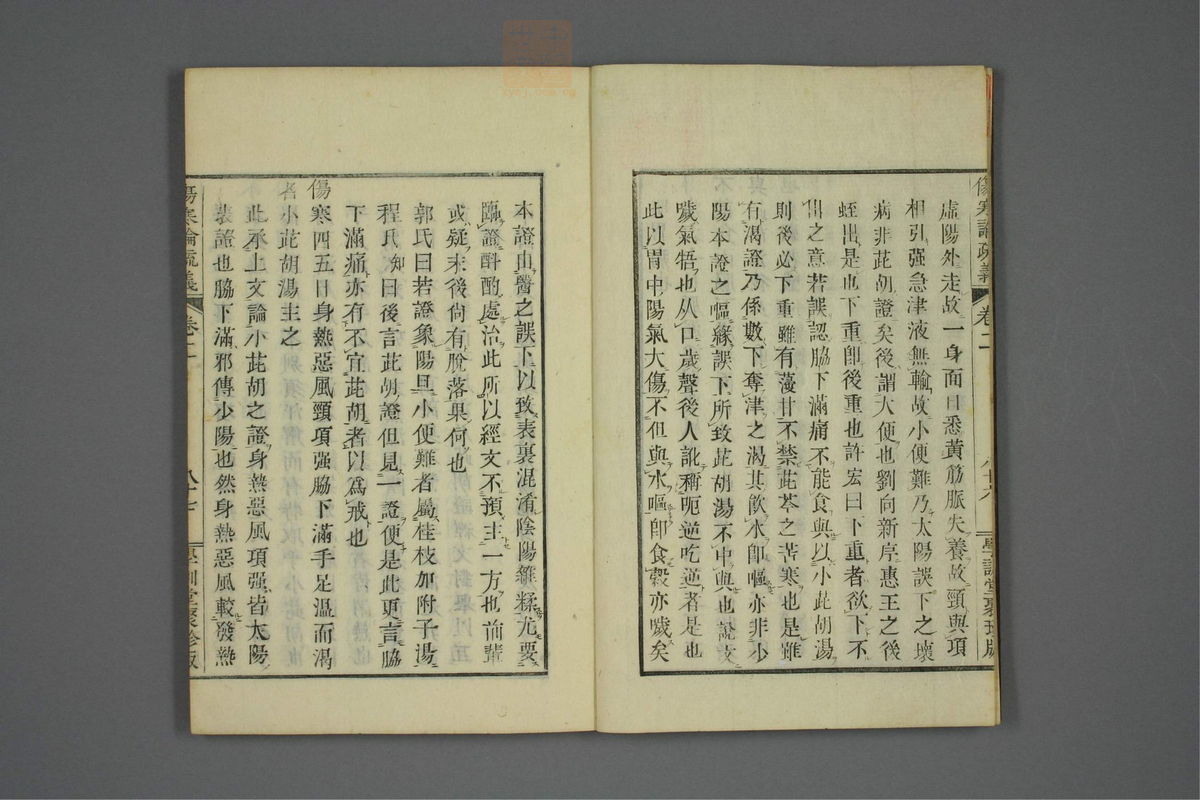 傷寒論疏義 卷二 八十六 學訓堂聚珍版
虛陽外走故一身面目悉黃筋脈失養故頸與項
相引强急津液無輸故小便難乃太陽誤下之壞
病非茈胡證矣後謂大便也劉向新序惠王之後
蛭出是也下重卽後重也許宏曰下重者欲下不
出之意若誤認脇下滿痛不能食與以小茈胡湯
則後必下重雖有薓甘不禁茈芩之苦寒也是雖
有渴證乃係數下奪津之渴其飮水卽嘔亦非少
陽本證之嘔緣誤下所致茈胡湯不中與也說文
噦氣牾也从口歲聲後人訛稱呃逆吃逆者是也
此以胃中陽氣大傷不但與水嘔卽食穀亦噦矣
本證由醫之誤下以致表裏混淆陰陽雜糅尤要
臨證酙酌處治此所以經文不預主一方也前輩
或疑末後尙有脫落果何也
郭氏曰若證象陽旦小便難者屬桂枝加附子湯
程氏知曰後言茈胡證但見一證便是此更言脇
下滿痛亦有不宜茈胡者以爲戒也
傷寒四五日身熱惡風頸項强脇下滿手足溫而渴
者小茈胡湯主之
此承上文論小茈胡之證身熱惡風項强皆太陽
表證也脇下滿邪傳少陽也然身熱惡風較發熱
傷寒論疏義 卷二 八十七 學訓堂聚珍版